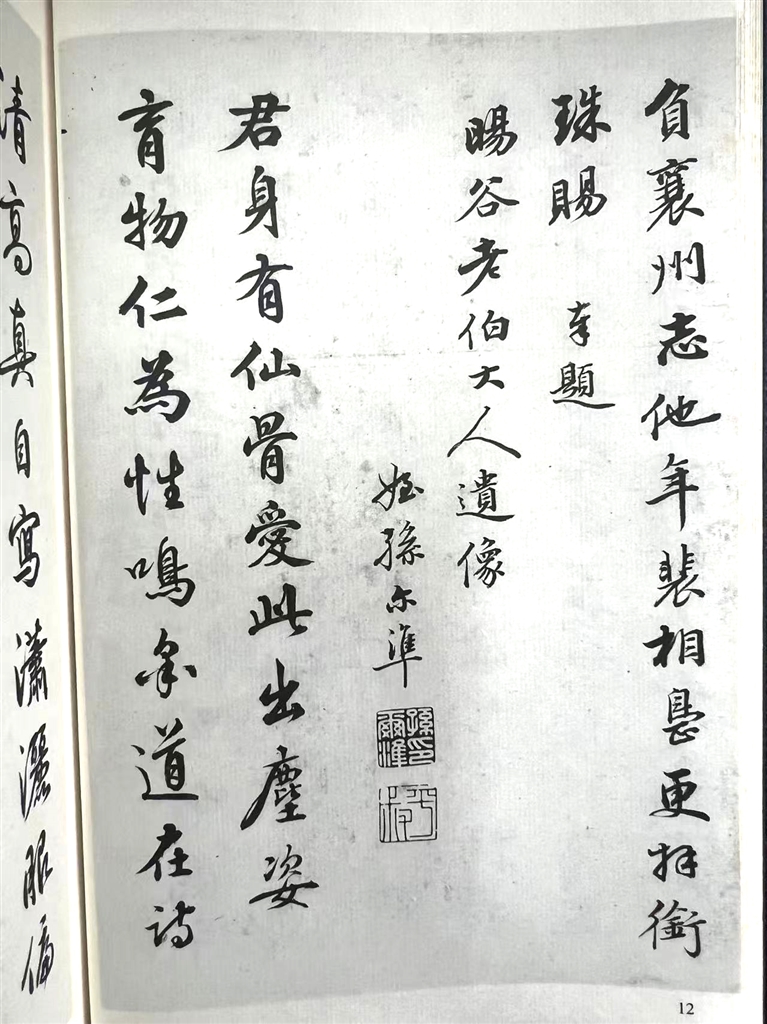 負襄州志他年裴相㠯更拜銜
珠賜
奉題
暘谷老伯大人遺像
姪孫尒準
孫爾準印
平叔
君身有仙骨愛此出塵姿
育物仁為性鳴禽道在詩
清高真自寫瀟灑服偏
12